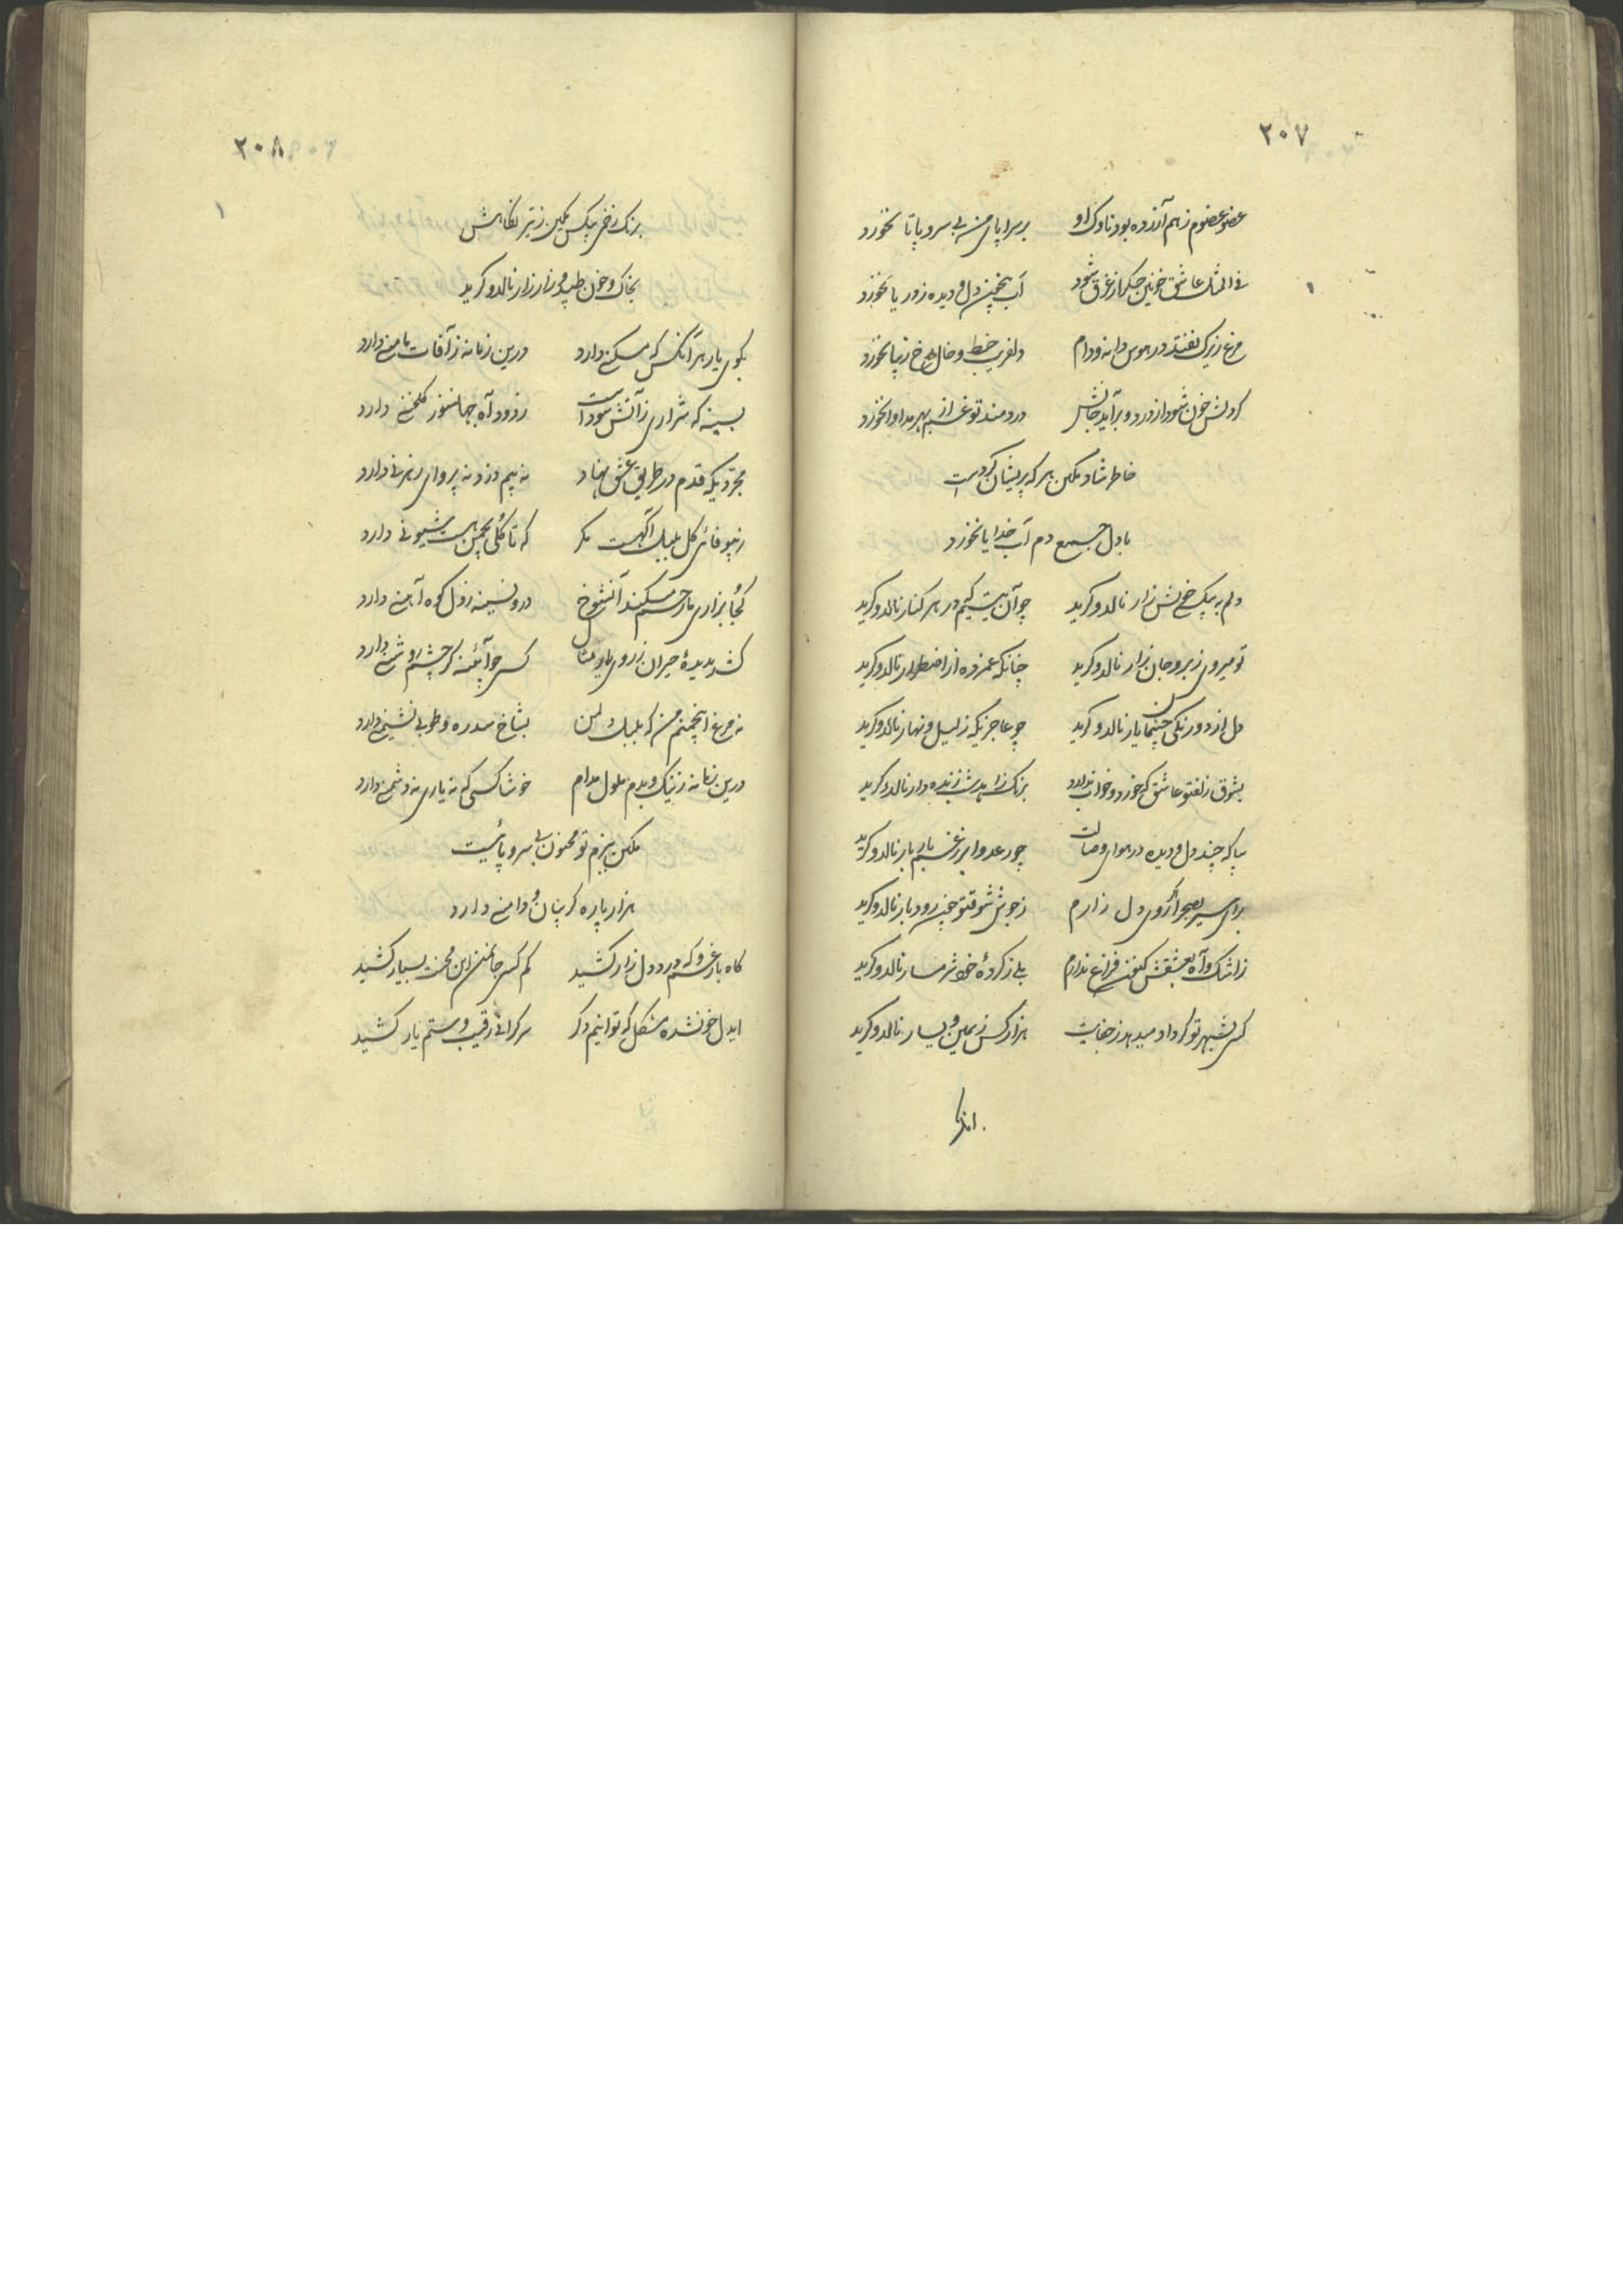 ۲۰۷
عضو عضوم ز هم آزرده بود ناوک او بر سراپای من بی سر و پا تا نخورد
فی المثل عاشق خونین جگر ار غرق شود آب بیخون دل و دیده ز دریا نخورد
مرغ زیرک نفتد در هوس دانه و دام دلفریب خط و خال رخ زیبا نخورد
گر دلش خون شود از درد و برآید جانش دردمند تو غم از بهر مداوا نخورد
خاطر شاد مکین هر که پریشان کردست
با دل جمع دم آب خدایا نخورد
دلم به بیکسی خویش زار نالد و گرید چو آن یتیم که در هر کنار نالد و گرید
تو میروی ز بر و جان زار نالد و گرید چنانکه غمزده از اضطرار نالد و گرید
دل از دورنگی چشمان یار نالد و گرید چو عاجزیکه ز لیل و نهار نالد و گرید
بشوق زلف تو عاشق که خورد و خواب ندارد برنگ زاهد شب زنده دار نالد و گرید
بیا که چند دل و دیده در هوای وصالت چو رعد و ابر ز غم بار بار نالد و گرید
برای سیر بصحرا گر آوری دل زارم ز جوش شوق تو چون رودبار نالد و گرید
ز اشک و آه بعشقش کنون فراغ ندارم بلی ز کردهٔ خود شرمسار نالد و گرید
کسی بشهر تو گر داد میدهد ز جفایت هزار کس ز یمین و یسار نالد و گرید
۲۰۸
برنگ زخمی بیکس مکین ز تیر نگاهش
بخاک و خون طپد و زار زار نالد و گرید
بکوی یار هر آنکس که مسکنی دارد درین زمانه ز آفات مامنی دارد
بسینه که شراری ز آتش سوداست ز دود آه جهانسوز گلخنی دارد
مجردیکه قدم در طریق عشق نهاد نه بیم دزد نه پروای رهزنی دارد
ز بیوفائی گل بلبل آگهست مگر که تا گلی بچمن هست شیونی دارد
کجا بزاری ما رحم میکند آنشوخ درون سینه ز دل کوه آهنی دارد
کشد بدیدهٔ حیران ز روی یار مثال کسی چو آئینه گر چشم روشنی دارد
نه مرغ اینچمنم من که بلبل دل من بشاخ سدره و طوبی نشیمنی دارد
درین زمانه ز نیک و بدم ملول مدام خوشا کسی که نه یاری نه دشمنی دارد
مکین ببزم تو مجنون بی سر و پائیست
هزار پاره گریبان و دامنی دارد
گاه بار غم و گه درد دل زار کشید کم کسی چون من این محنت بسیار کشید
ایدل خونشده مشکل که توانیم دگر سرگرانی رقیب و ستم یار کشید